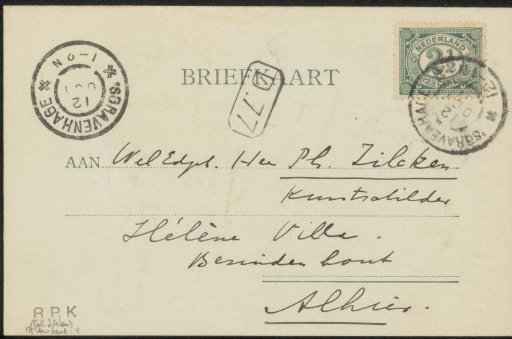 'SGRAVENHAGE
12
1-2N
BRIEFKAART
D.77
NEDERLAND
2½
'SGRAVENHAGE
AAN WelEdgb. Heer Ph. Zilcken
Kunstschilder
Hélène Villa.
Bezuidenhout
Alhier.
R P K
(Coll. Zilcken)